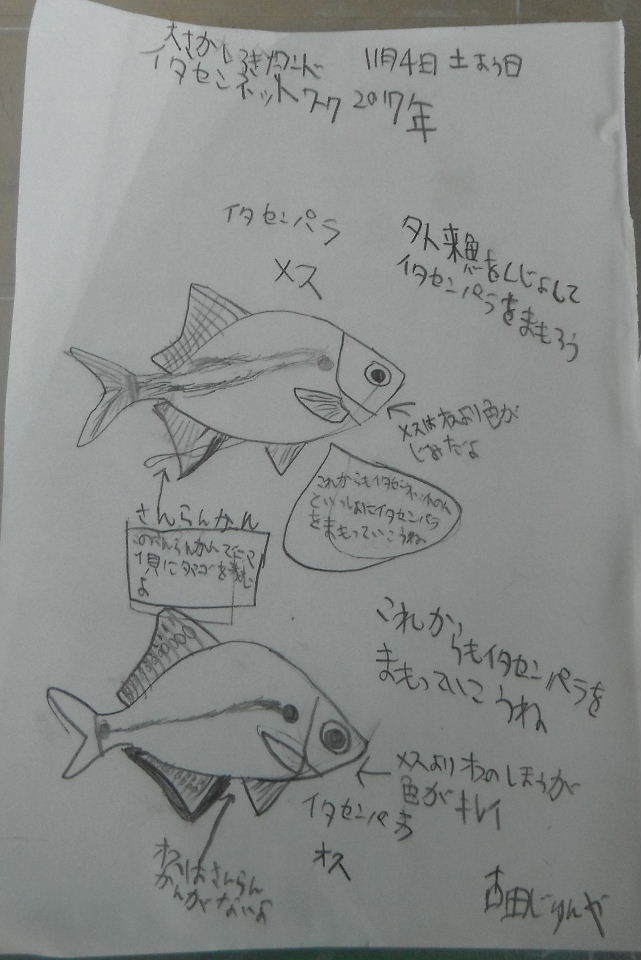 大さか 11月4日 土よう日
イタセンネットワーク 2017年
イタセンパラ
メス
外来魚をくじょして
イタセンパラをまもろう
メスはオスより色が
じみだよ
さんらんかん
このさんらんかんで
貝にタマゴを産む
よ
これからもイタセンネットのみんな
といっしょにイタセンパラ
をまもっていこうね
これか
らもイタセンパラを
まもっていこうね
メスよりオスのほうが
色がキレイ
イタセンパラ
オス
オスはさんらん
かんがないよ
古田じゅんや